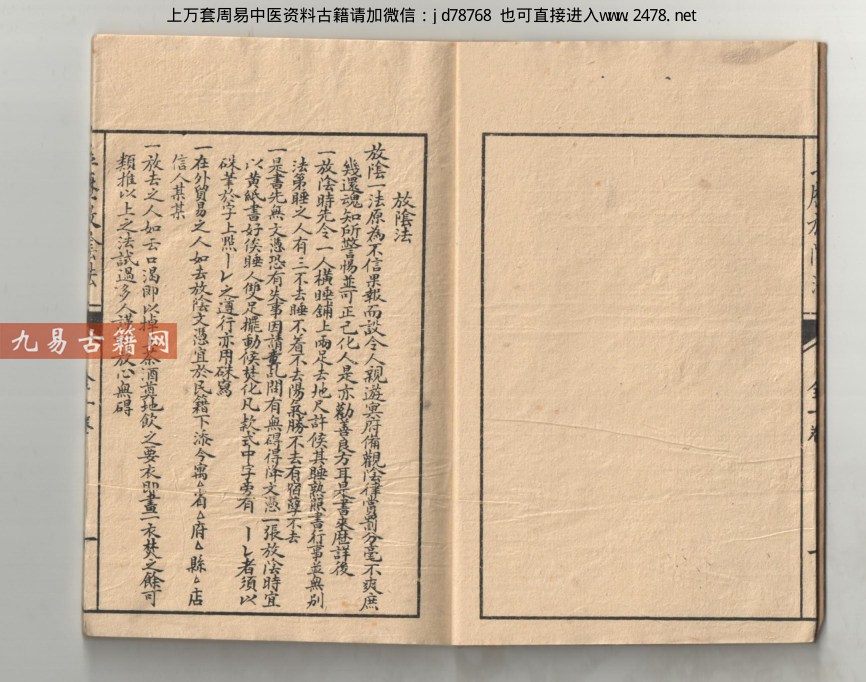 上万套周易中医资料古籍请加微信：jd78768 也可直接进入www.2478.net
放陰法
放陰一法原為不信果報而設令人親遊冥府備觀陰律賞罰分毫不爽庶
幾還魂知所警惕並可正己化人是亦勸善良方耳是書來歷詳後
一放陰時先令一人橫睡舖上兩足去地尺許候其睡熟照書行事並無別
法第睡之人有三不去睡不着不去陽氣勝不去有宿孽不去
一是書先無文憑恐有失事因請乩問有無碍得降文憑一張放陰時宜
以黃紙書好俟睡人雙足擺動候焚化凡款式中字旁有 者須以
硃筆於字上照 之遵行亦用硃寫
一在外貿易之人如去放陰文憑宜於民籍下添今寓△省△府△縣△店
信人某某
一放去之人如云口渴即以 茶酒奠地飲之要衣即畫一衣焚之餘可
類推以上之法試過多人 放心無碍
全一卷
一
九易古籍网